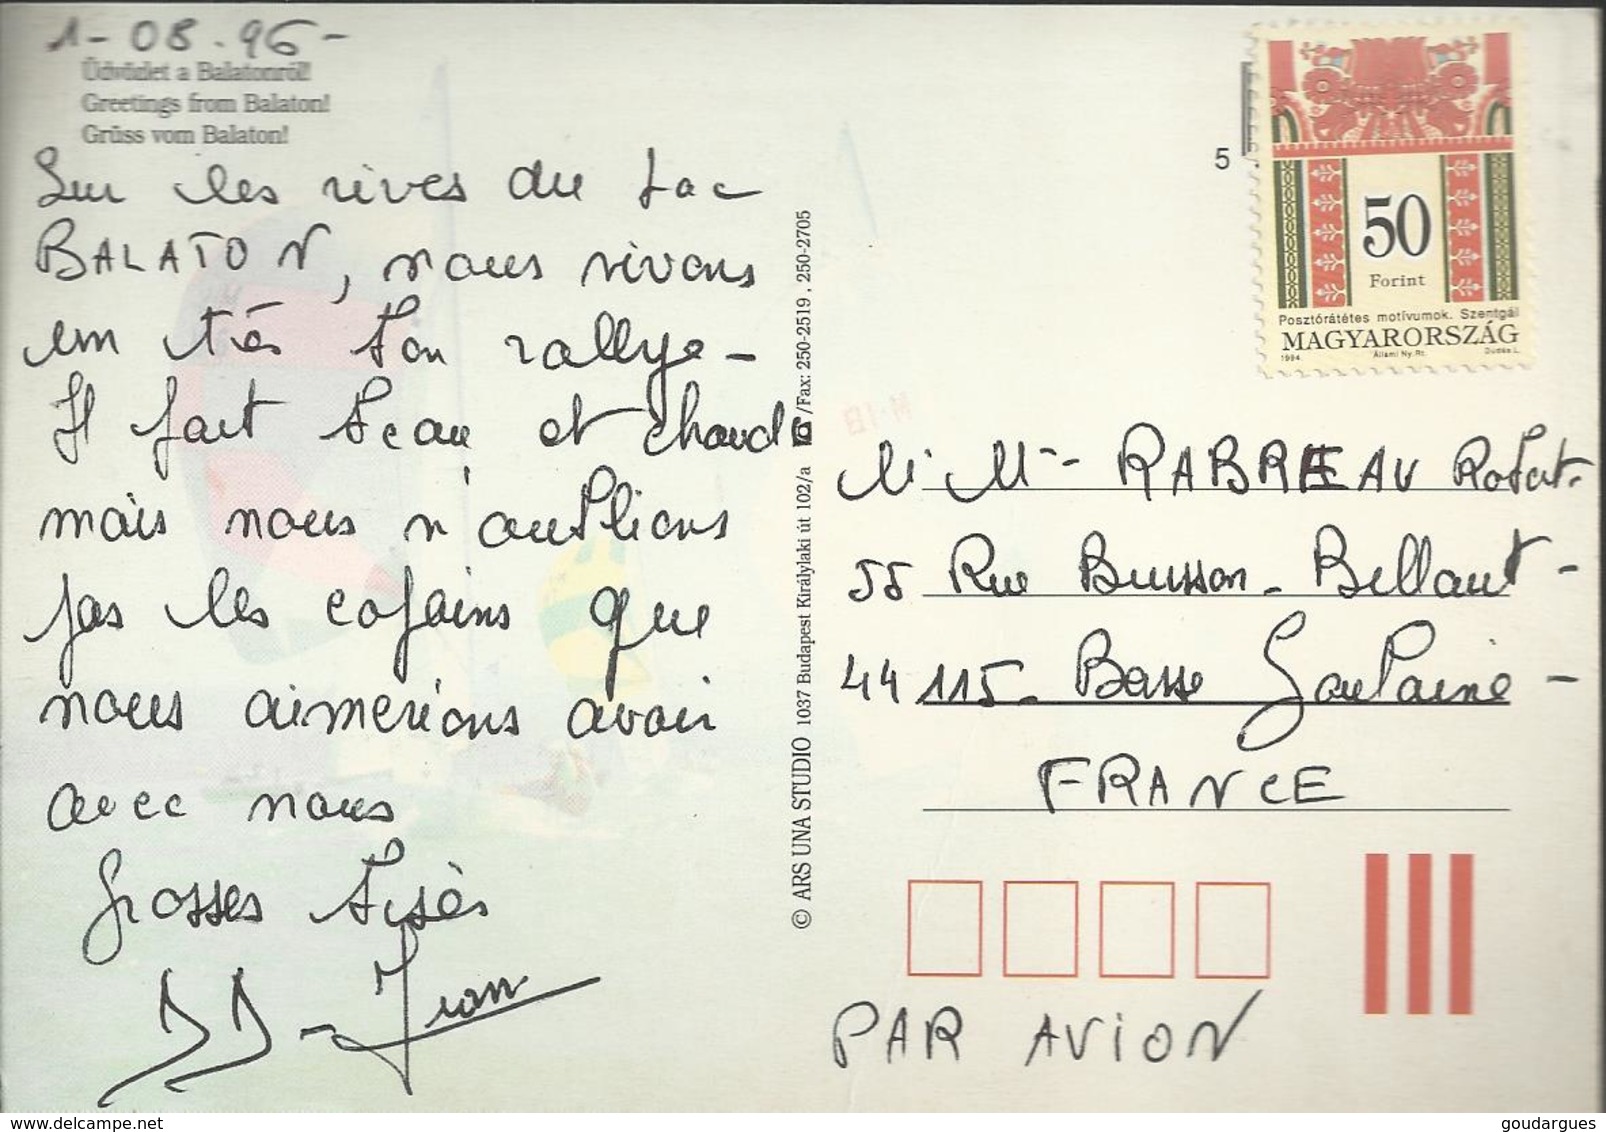 1-08-96-
Üdvözlet a Balatonról!
Greetings from Balaton!
Grüss vom Balaton!
Sur les rives du Lac
BALATON, nous vivons
un très bon rallye-
Il fait beau et chaud
mais nous n'oublions
pas les copains que
nous aimerions avoir
avec nous
Grosses bises
JJ-
© ARS UNA STUDIO 1037 Budapest Királylaki út 102/a /Fax: 250-2519, 250-2705
5
50
Forint
Posztórátétes motívumok. Szentgál
MAGYARORSZÁG
1994 Állami Ny. Rt. Dudás L.
M. Mme RABREAU Robert.
55 Rue Buisson-Bellaut-
44115- Basse Goulaine-
FRANCE
PAR AVION
goudargues